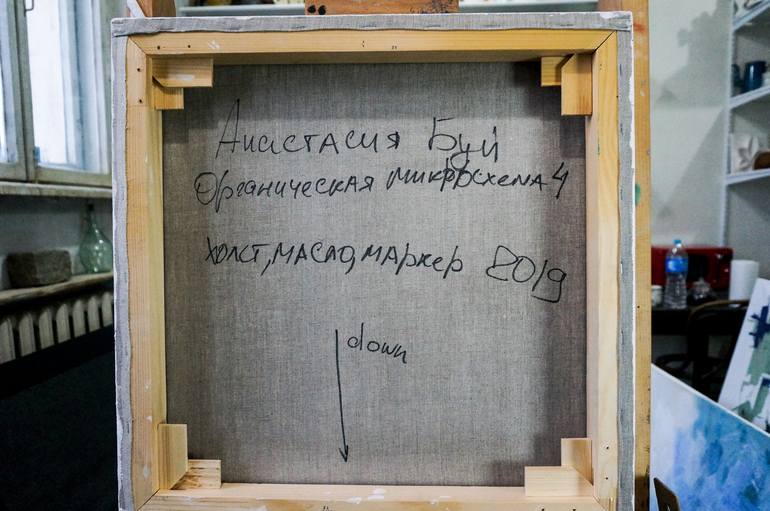 Анастасия Буй
Органическая микросхема 4
холст, масло, маркер 2019
down